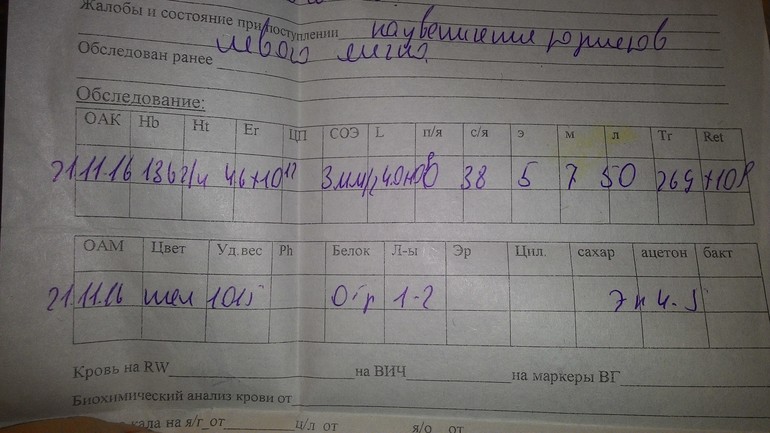 Жалобы и состояние при поступлении на увеличение
левого
Обследован ранее
Обследование:
ОАК Hb Ht Er ЦП СОЭ L п/я с/я э м л Tr Ret
21.11.16 136 г/л 4.6×10¹² 3 мм/г 0 38 5 7 50 269 ×10⁹
ОАМ Цвет Уд.вес Ph Белок Л-ы Эр Цил. сахар ацетон бакт
21.11.16 жел 1015 Отр 1-2 Эп 4-5
Кровь на RW на ВИЧ на маркеры ВГ
Биохимический анализ крови от
кала на я/г от ц/л от я/о от